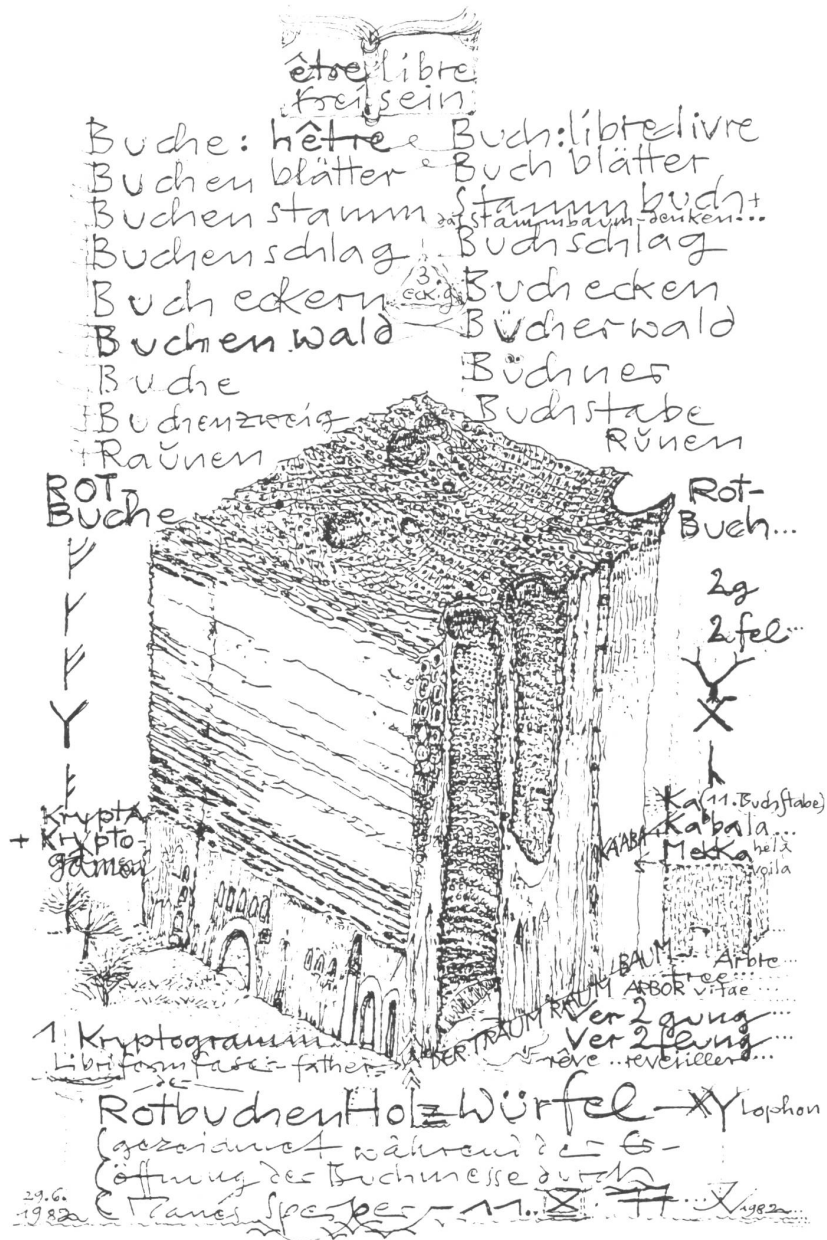 être libre
frei sein
Buche: hêtre
Buchen blätter
Buchen stamm
Buchen schlag
Buch eckern
Buchen wald
Buche
Buchenzweig
+Raŭnen
Buch: libre livre
Buch blätter
Stamm buch +
das stammbaum-denken...
Buchschlag
Buch ecken
Bücherwald
Büchner
Buchstabe
Rŭnen
3
eck.g
ROT-
Buche
Rot-
Buch...
2g
2fel...
Krypta
+ Krypto-
gamen
Ka (11. Buchstabe)
Kabala...
Mekka
voila
KA'ABA
BAUM
Arbre...
tree...
ARBOR vitae
DER TRAUM RAUM
Ver2gung...
Ver2flung...
rêve ..reveiller...
1 Kryptogramm
Libriformfaser-father
der
RotbuchenHolzWürfel-XYlophon
(gezeichnet während der Er-
öffnung der Buchmesse durch
Manés Sperber - 11. X. 77...
29.6.
1982
1982...